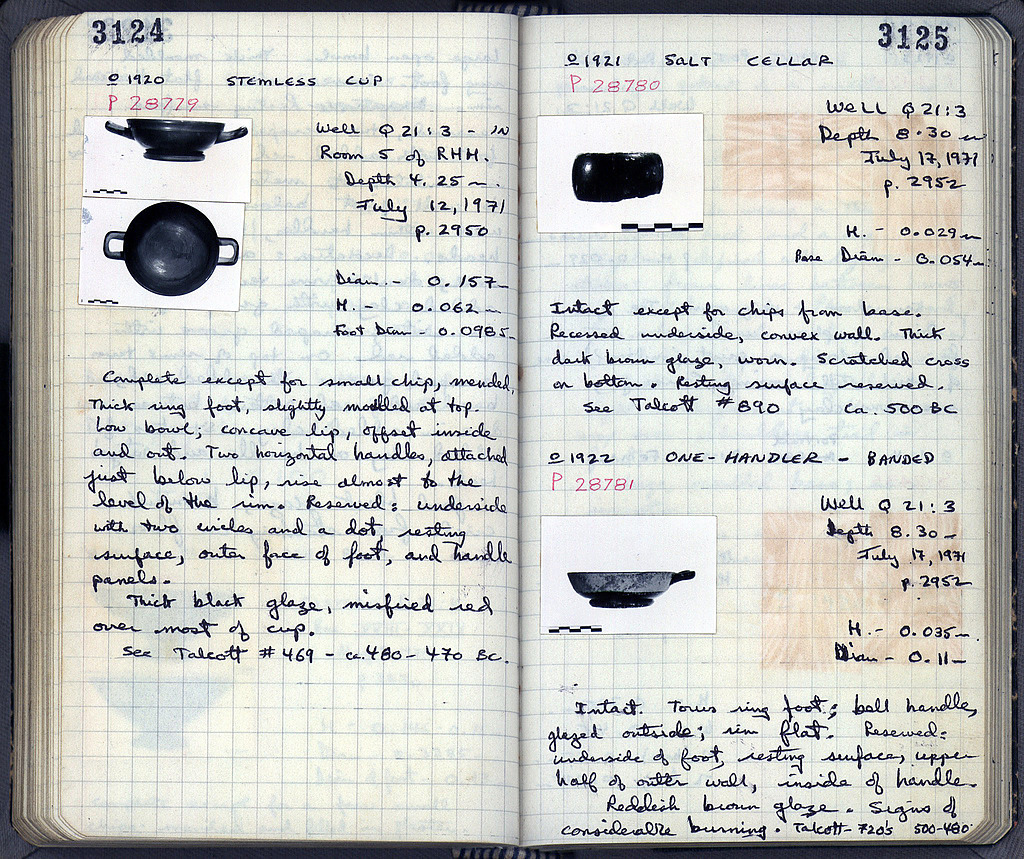 3124
O 1920 STEMLESS CUP
P 28779
Well Q 21:3 - IN
Room 5 of RHH.
Depth 4.25 m.
July 12, 1971
p. 2950
Diam. - 0.157
H. - 0.062 m
Foot Diam - 0.0985
Complete except for small chip, mended.
Thick ring foot, slightly molded at top.
Low bowl; concave lip, offset inside
and out. Two horizontal handles, attached
just below lip, rise almost to the
level of the rim. Reserved: underside
with two circles and a dot, resting
surface, outer face of foot, and handle
panels.
Thick black glaze, misfired red
over most of cup.
See Talcott # 469 - ca. 480 - 470 BC.
3125
O 1921 SALT CELLAR
P 28780
Well Q 21:3
Depth 8.30 m
July 17, 1971
p. 2952
H. - 0.029 m
Base Diam - 0.054 m
Intact except for chips from base.
Recessed underside, convex wall. Thick
dark brown glaze, worn. Scratched cross
on bottom. Resting surface reserved.
See Talcott # 890 ca. 500 BC
O 1922 ONE-HANDLER - BANDED
P 28781
Well Q 21:3
Depth 8.30
July 17, 1971
p. 2952
H. - 0.035 m.
Diam - 0.11
Intact. Torus ring foot; ball handle,
glazed outside; rim flat. Reserved:
underside of foot, resting surface, upper
half of outer wall, inside of handle.
Reddish brown glaze. Signs of
considerable burning. Talcott - 720's 500-480